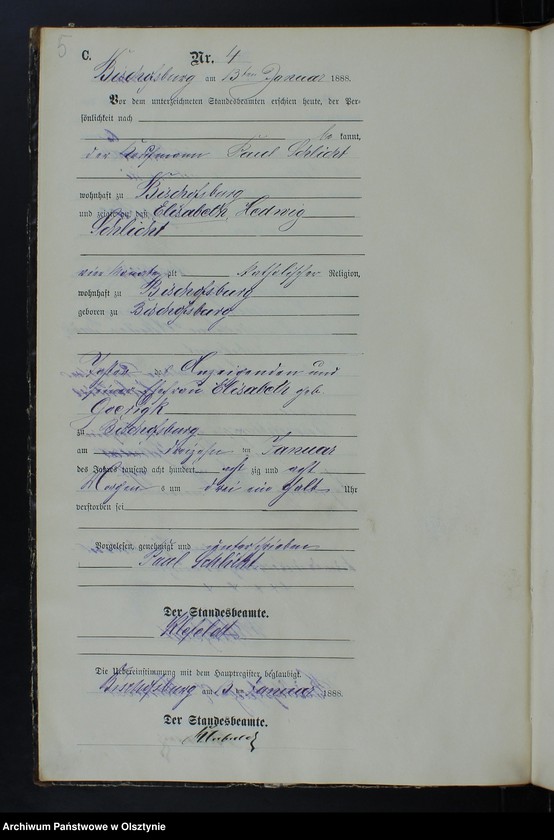 5
C.
Nr. 4
Bischofsburg am 13ten Januar 1888.
Vor dem unterzeichneten Standesbeamten erschien heute, der Per-
sönlichkeit nach
be kannt,
der Kaufmann Paul Schlicht
wohnhaft zu Bischofsburg
und zeigte an, daß Elisabeth Hedwig
Schlicht
vier Monate alt Katholischer Religion,
wohnhaft zu Bischofsburg
geboren zu Bischofsburg
Tochter des Anzeigenden und
seiner Ehefrau Elisabeth geb.
Goerigk
zu Bischofsburg
am dreizehn ten Januar
des Jahres tausend acht hundert acht zig und acht
Morgen s um drei ein halb Uhr
verstorben sei
Vorgelesen, genehmigt und unterschrieben
Paul Schlicht
Der Standesbeamte.
Die Uebereinstimmung mit dem Hauptregister beglaubigt.
Bischofsburg am 13 ten Januar 1888.
Der Standesbeamte.
Archiwum Państwowe w Olsztynie